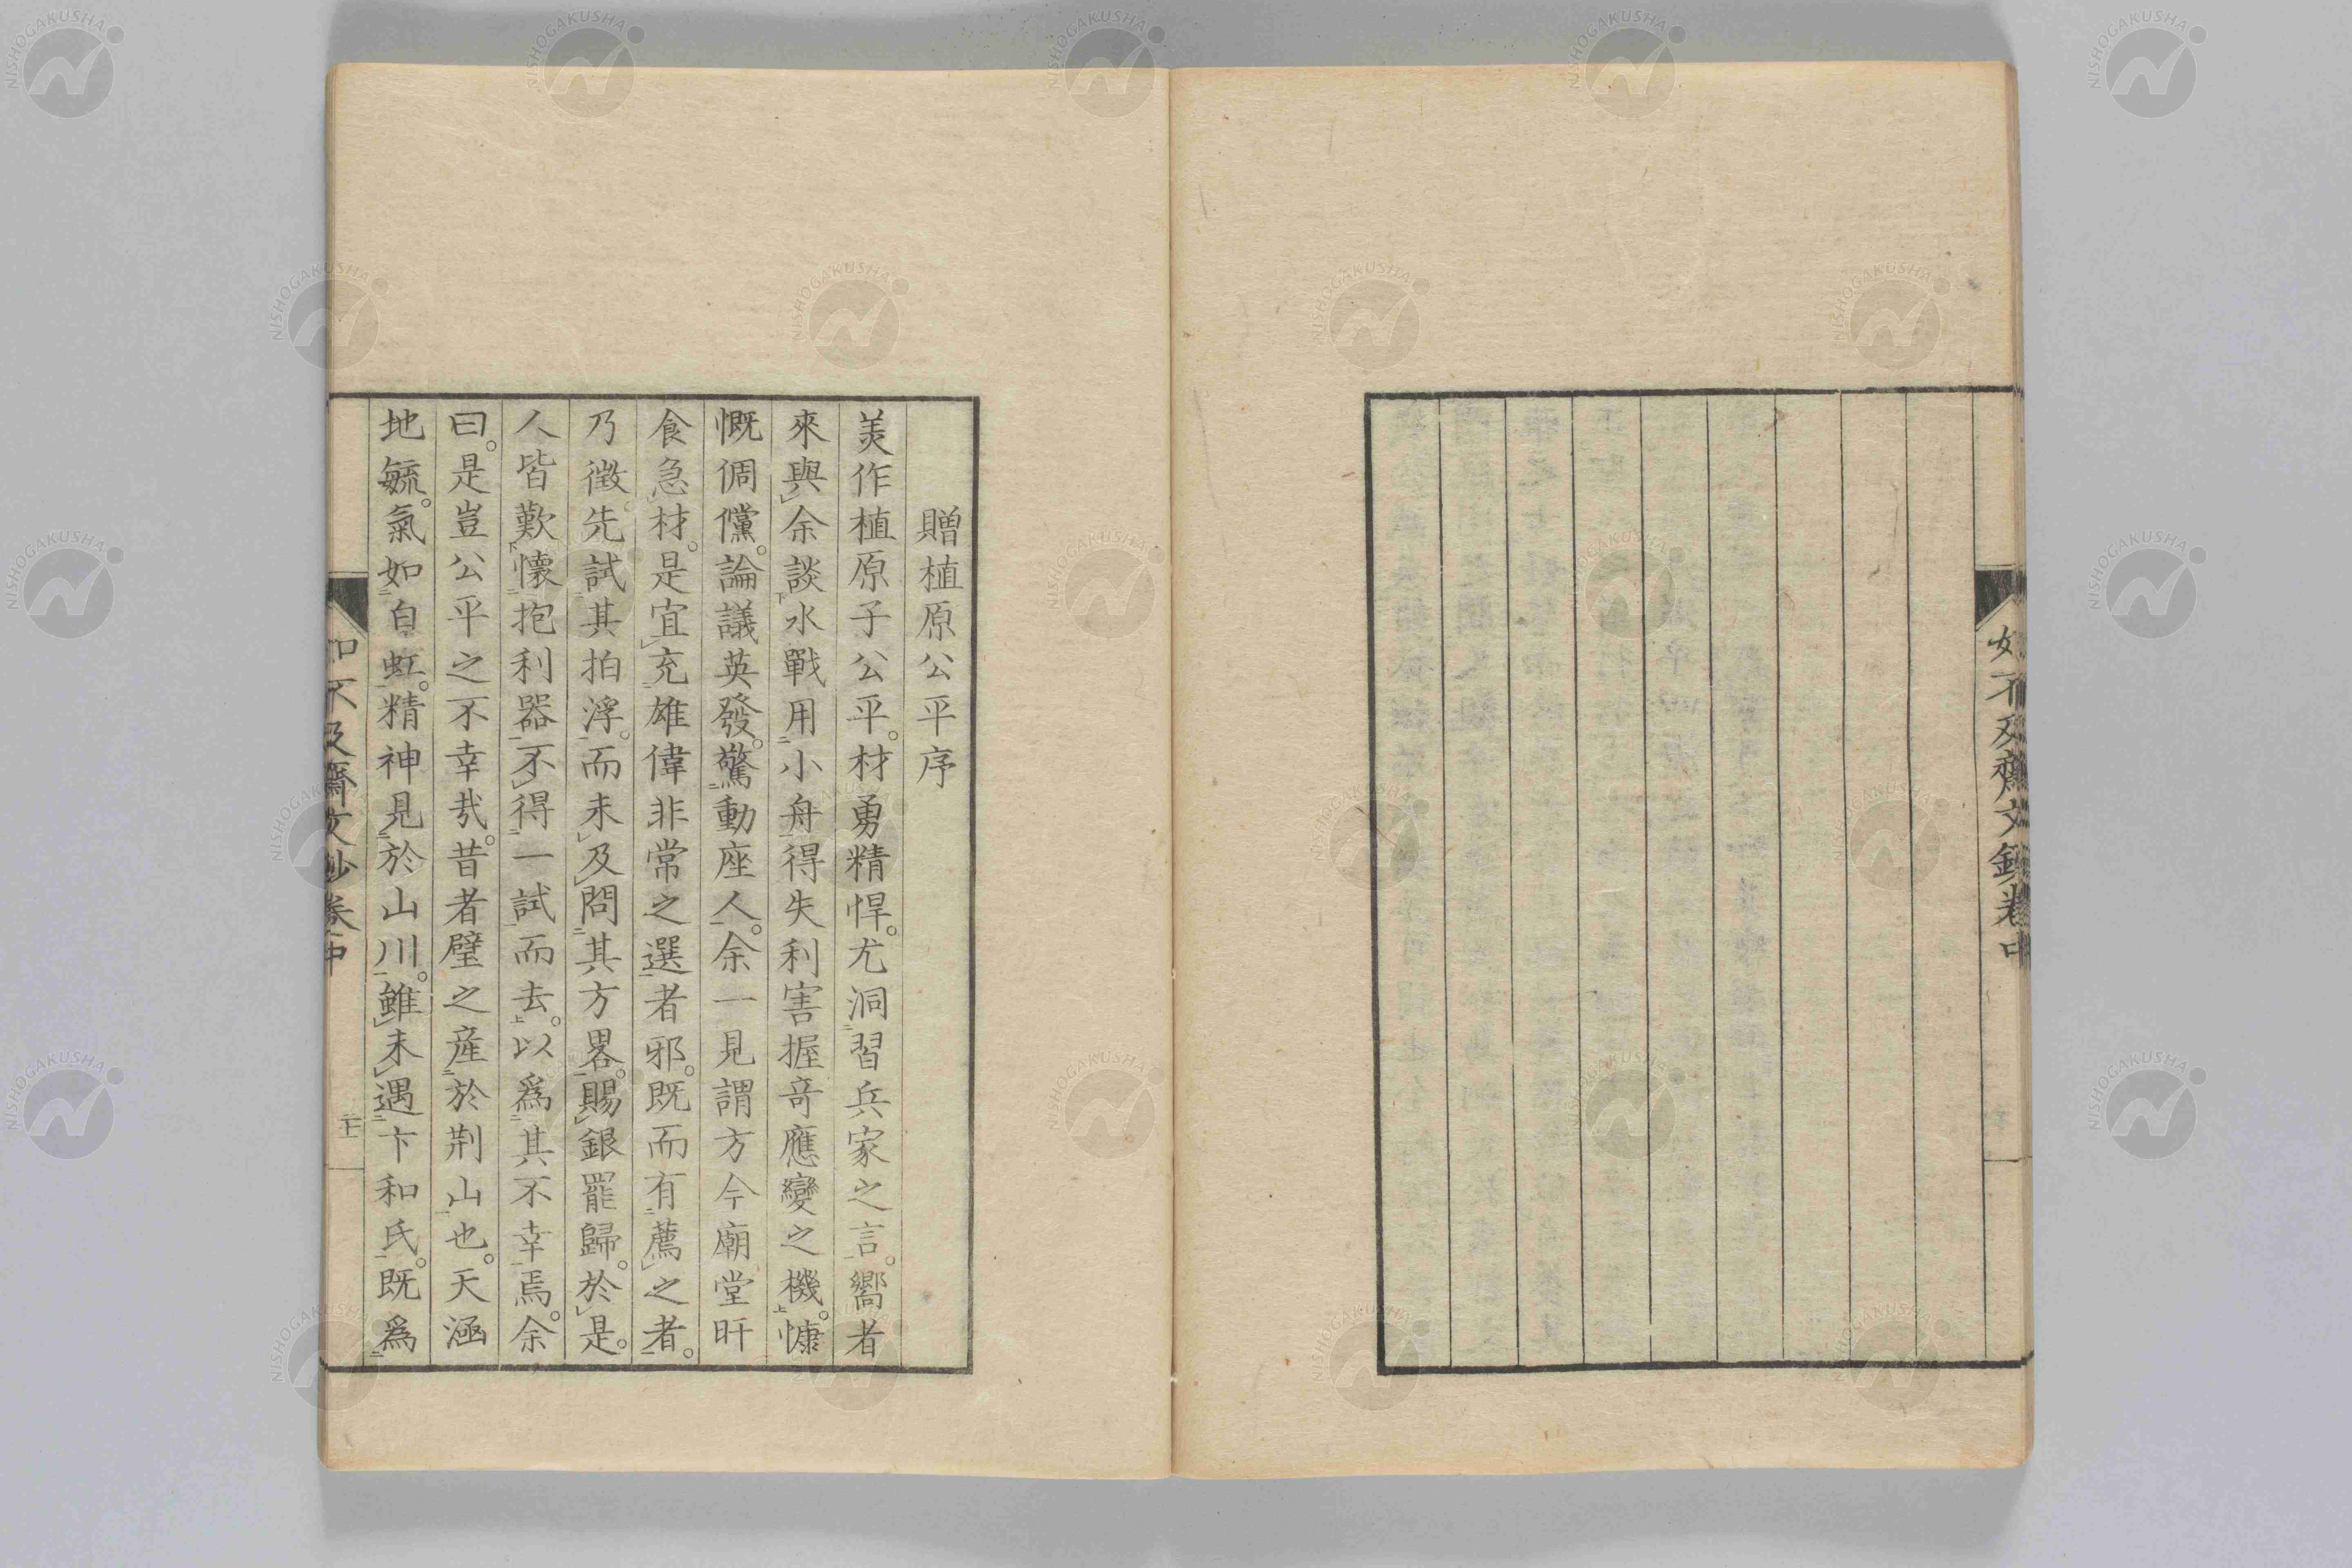 如不及齋文鈔卷中
贈植原公平序
美作植原子公平。材勇精悍。尤洞習兵家之言。嚮者
來與余談水戰用小舟得失利害握竒應變之機。慷
慨倜儻。論議英發。驚動座人。余一見謂方今廟堂旰
食急材。是宜充雄偉非常之選者邪。既而有薦之者。
乃徴先試其拍浮。而未及問其方畧。賜銀罷歸。於是。
人皆歎懷抱利器不得一試而去。以爲其不幸焉。余
曰。是豈公平之不幸㢤。昔者璧之產於荆山也。天涵
地毓。氣如白虹。精神見於山川。雖未遇卞和氏。既爲
如不及齋文鈔卷中
NISHOGAKUSHA